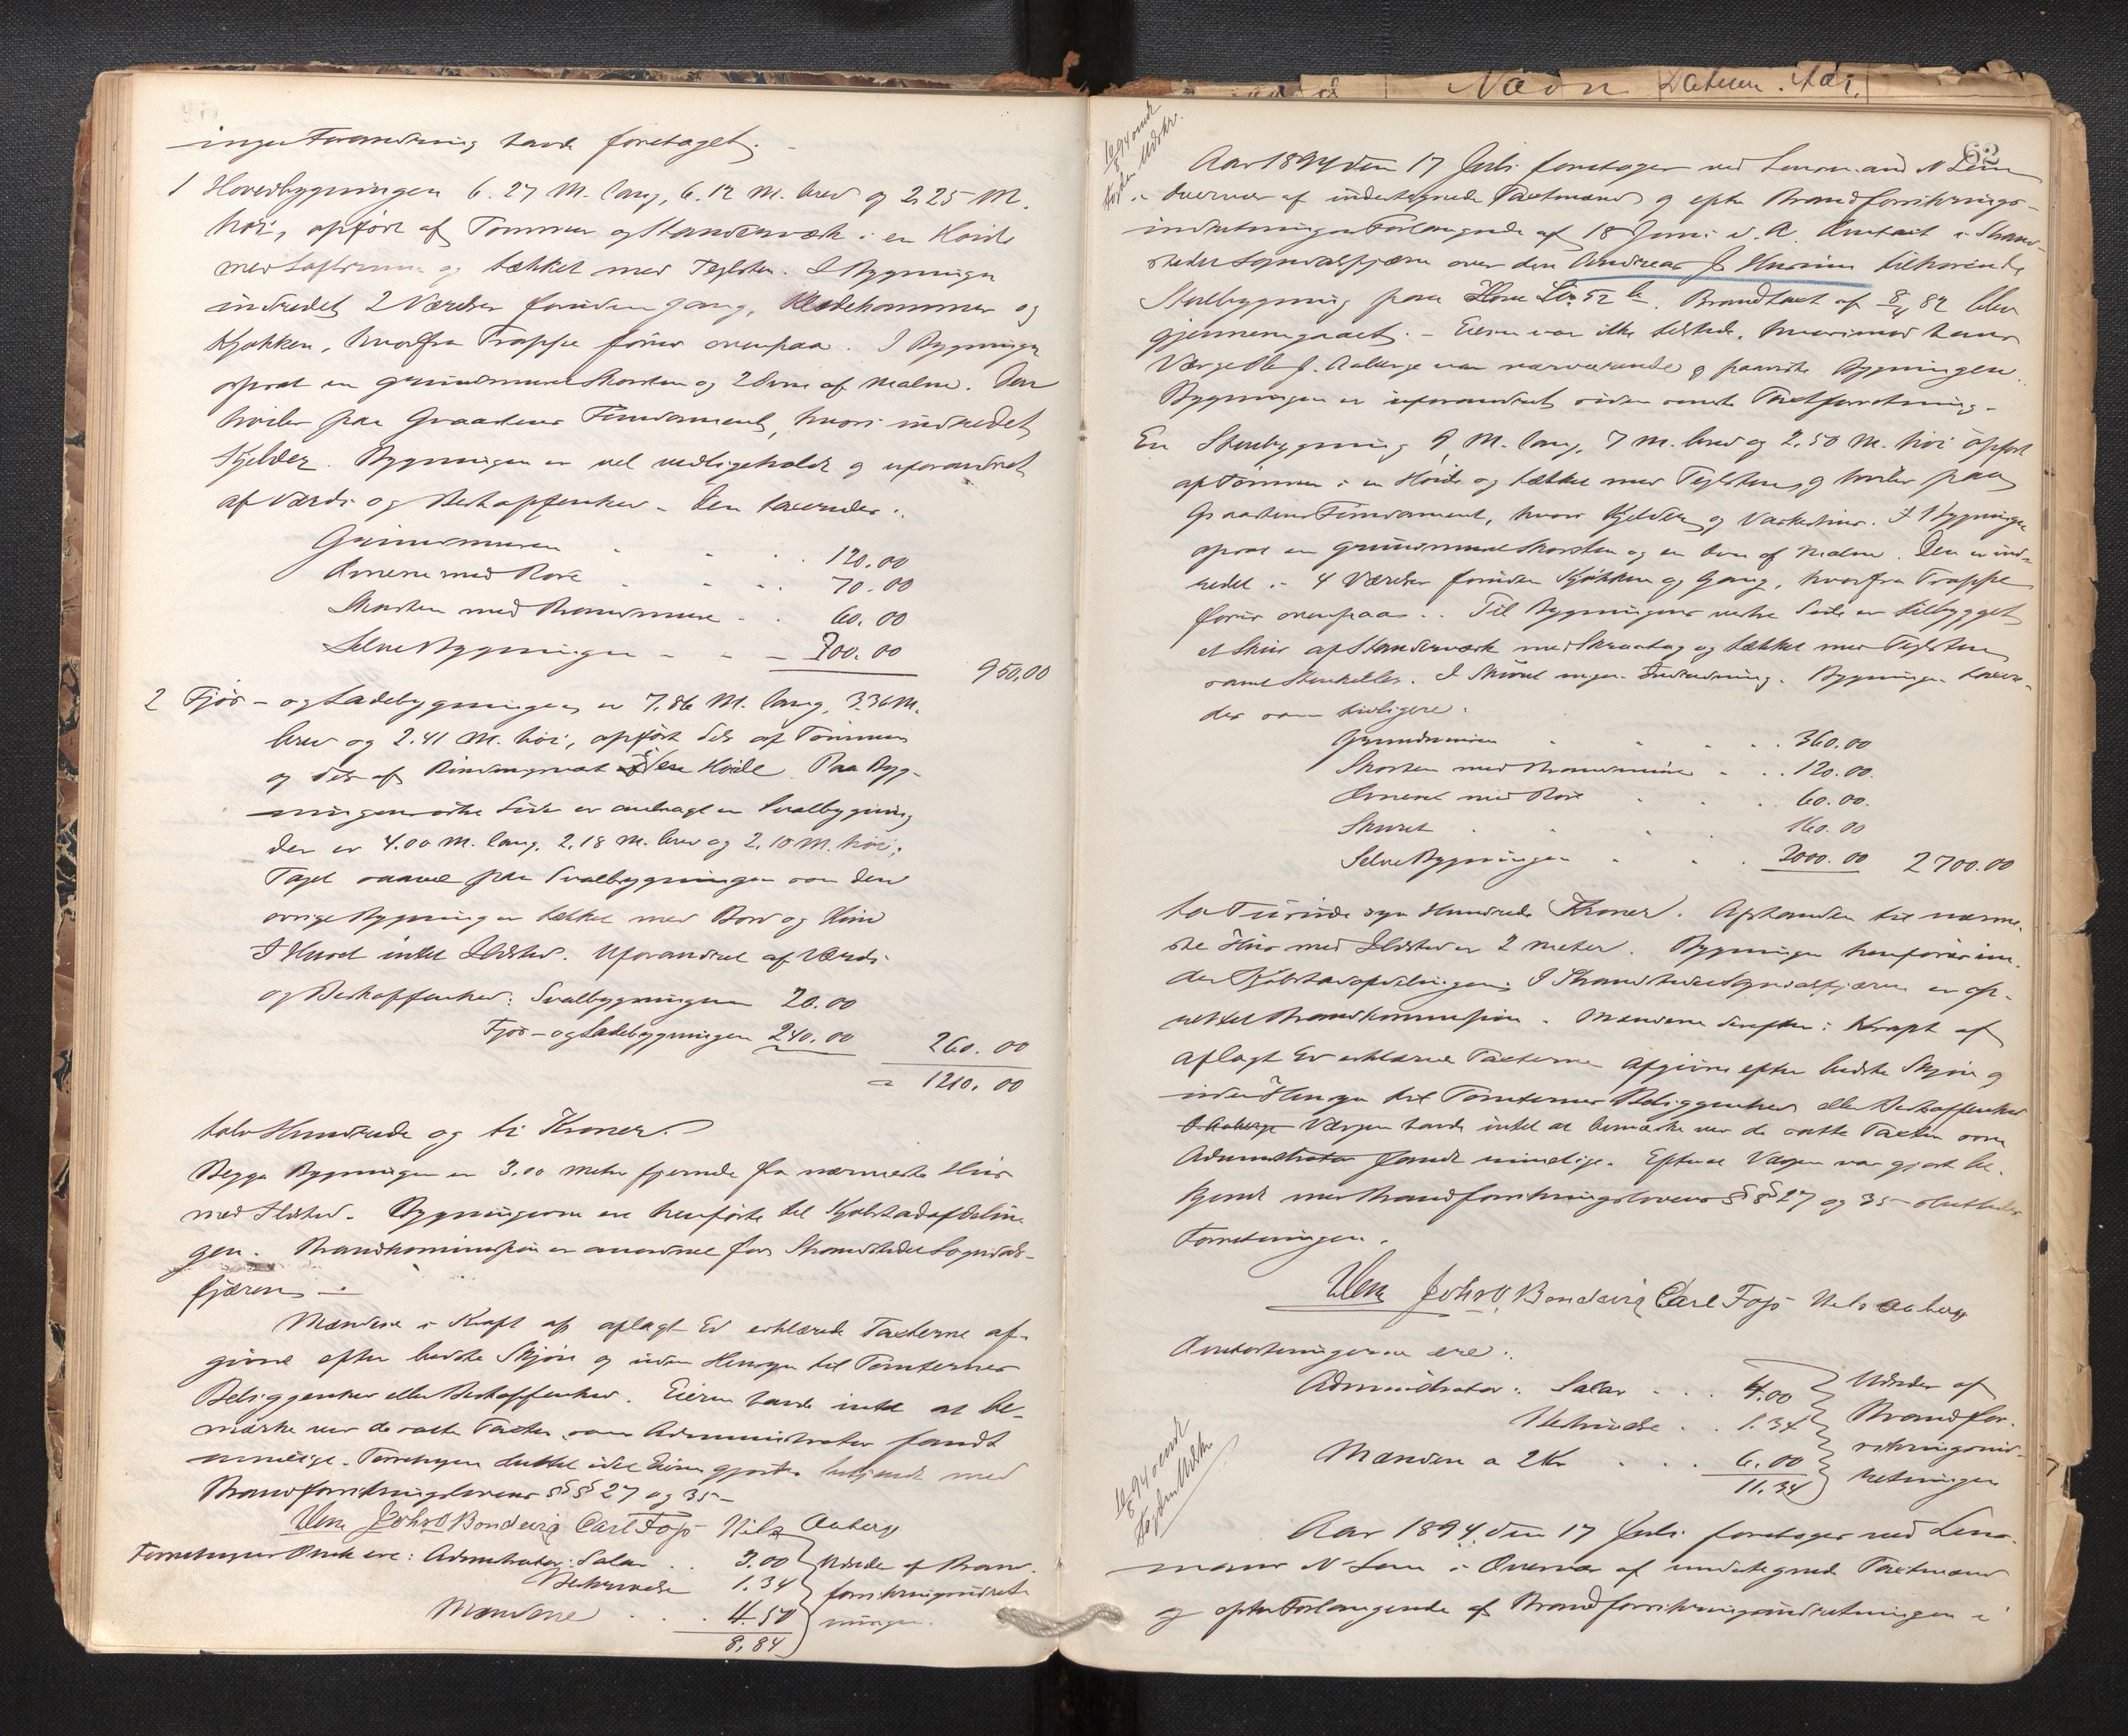 ingen Forandring havde foretaget.
1 Hovedbygningen 6.27 M. lang, 6.12 M. bred og 2.25 M.
høi, opført af Tømmer og Standerværk i en Høide
med Loftsrum og tækket med Teglsten. I Bygningen
indredet 2 Værelser foruden Gang, Klædekammer og
Kjøkken, hvorfra Trappe fører ovenpaa. I Bygningen
opsat en grundmuret Skorsten og 2 Ovne af Malm. Den
hviler paa Graastens Fundament, hvori indredet
Kjelder. Bygningen er vel vedligeholdt og uforandret
af Værdi og Beskaffenhed. Den taxeredes:
Grundmuren 120.00
Ovnene med Rør 70.00
Skorsten med Brandmure 60.00
Selve Bygningen 700.00 950.00
2 Fjøs- og Ladebygningen er 7.86 M. lang, 3.36 M.
bred og 2.41 M. høi, opført dels af Tømmer
og dels af Bindingsværk i en Høide. Paa Byg-
ningens Side er anbragt en Svalbygning
der er 4.00 M. lang, 2.18 M. bred og 2.10 M. høi;
Taget saavel paa Svalbygningen som den
øvrige Bygning er tækket med Bord og
I Huset intet Ildsted. Uforandret af Værdi
og Beskaffenhed: Svalbygningen 20.00
Fjøs- og Ladebygningen 240.00 260.00
= 1210.00
tolv Hundrede og ti Kroner.
Begge Bygninger er 3.00 Meter fjernede fra nærmeste Hus
med Ildsted. Bygningerne ere henførte til Kjøbstadafdelin-
gen. Brandkommission er anordnet for Strandstedet Sogndals-
fjæren.
Mændene i Kraft af aflagt Ed erklærede Taxterne af-
givne efter bedste Skjøn og uden Hensyn til Tomternes
Beliggenhed eller Beskaffenhed. Eieren havde intet at be-
mærke ved de satte Taxter, som Administrator fandt
rimelige. Forretningen sluttet Eieren gjort bekjendt med
Brandforsikringslovens §§ 27 og 35
Lem John O Bondevig Carl Foss Nils Aaberge
Forretningens ere: Administrator: Salær 3.00 Udrede af Brand-
Beskrivelse 1.34 forsikringsindret-
Mændene 4.50 ningen.
8.84
Navn Datum. Aar.
62
Aar 1894 den 17 Juli foretoges ved Lensmand N Lem
i Overvær af undertegnede Taxtmænd og efter Brandforsikrings-
indretningens Forlangende af 18 Juni d. A. Omtaxt i Strand-
stedet Sogndalsfjæren over den Andreas J tilhørende
Stuebygning paa Hove Lno. 52 b. Brandtaxt af 8/4 82 blev
gjennemgaaet. - Eieren var ikke tilstede, hvorimod hans
Værge J. Aaberge var nærværende og paaviste Bygningen.
Bygningen er uforandret siden sidste Taxtforretning.
En Stuebygning 9 M. lang, 7 M. bred og 2.50 M. høi opført
af Tømmer i en Høide og tækket med Teglsten og hviler paa
Graastens Fundament, hvori Kjelder og Vaskehus. I Bygningen
opsat en grundmuret Skorsten og en Ovn af Malm. Den er ind-
redet i 4 Værelser foruden Kjøkken og Gang, hvorfra Trappe
fører ovenpaa. Til Bygningens vestre Side er tilbygget
et Skur af Standerværk med Skraatag og tækket med Teglsten
samt Stenheller. I Skuret ingen Indredning. Bygningen taxere-
des som tidligere:
Grundmuren 360.00
Skorsten med Brandmure 120.00
Ovnen med Rør 60.00
Skuret 160.00
Selve Bygningen 2000.00 2700.00
to Tusinde syv Hundrede Kroner. Afstanden til nærme-
ste Hus med Ildsted er 2 Meter. Bygningen henføres un-
der Kjøbstadafdelingen. I Strandstedet Sogndalsfjæren er op-
rettet Brandkommission. Mændene derefter i Kraft af
aflagt Ed erklærede Taxterne afgivne efter bedste Skjøn og
uden Hensyn til Tomternes Beliggenhed eller Beskaffenhed
Værgen havde intet at bemærke ved de satte Taxter som
Administrator fandt rimelige. Efterat Værgen var gjort be-
kjendt med Brandforsikringslovens §§ 27 og 35 sluttedes
Forretningen.
Lem John O Bondevig Carl Foss Nils Aaberge
Omkostningerne ere:
Administrator: Salær 4.00 Udredes af
Beskrivelse 1.34 Brandfor-
Mændene a 2 Kr 6.00 sikringsind-
11.34 retningen
Aar 1894 den 17 Juli foretoges ved Lens-
mand N Lem i Overvær af undertegnede Taxtmænd
og efter Forlangende af Brandforsikringsindretningen i